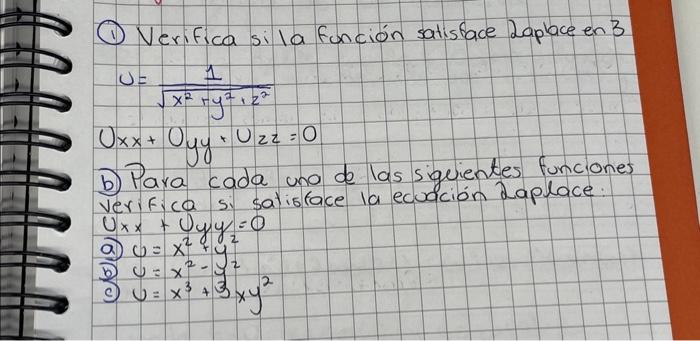 ① Verifica si la función satisface Laplace en 3
U= 1/√x²+y²+z²
Uxx + Uyy + Uzz = 0
ⓑ Para cada una de las siguientes funciones
verifica si satisface la ecuación Laplace:
Uxx + Uyy = 0
ⓐ U = x² + y²
ⓑ U = x² - y²
ⓒ U = x³ + 3xy²